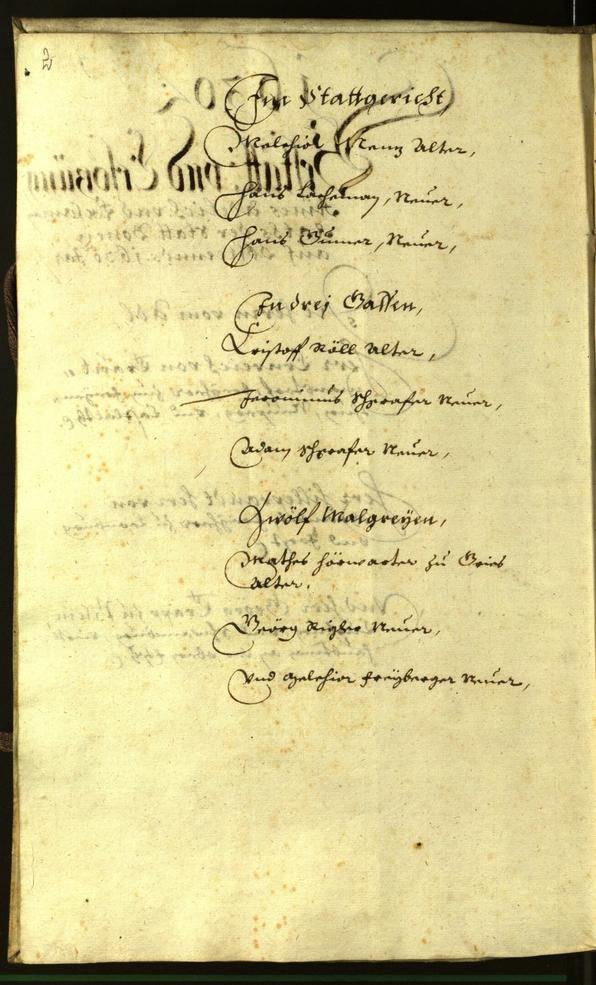 2
Im Stattgericht
Melchior Menz Alter,
Hans Lachman, Neuer,
Hans Gumer, Neuer,
Andrej Gassen,
Cristoff Röll Alter,
Jeronimus Schrafer Neuer,
Adam Schrafer Neuer,
Zwölf Malgreÿen,
Mathes Hörwarter zu Gries
Alter.
Geörg Rigler Neuer,
Vnd Melchior Freÿberger Neuer,